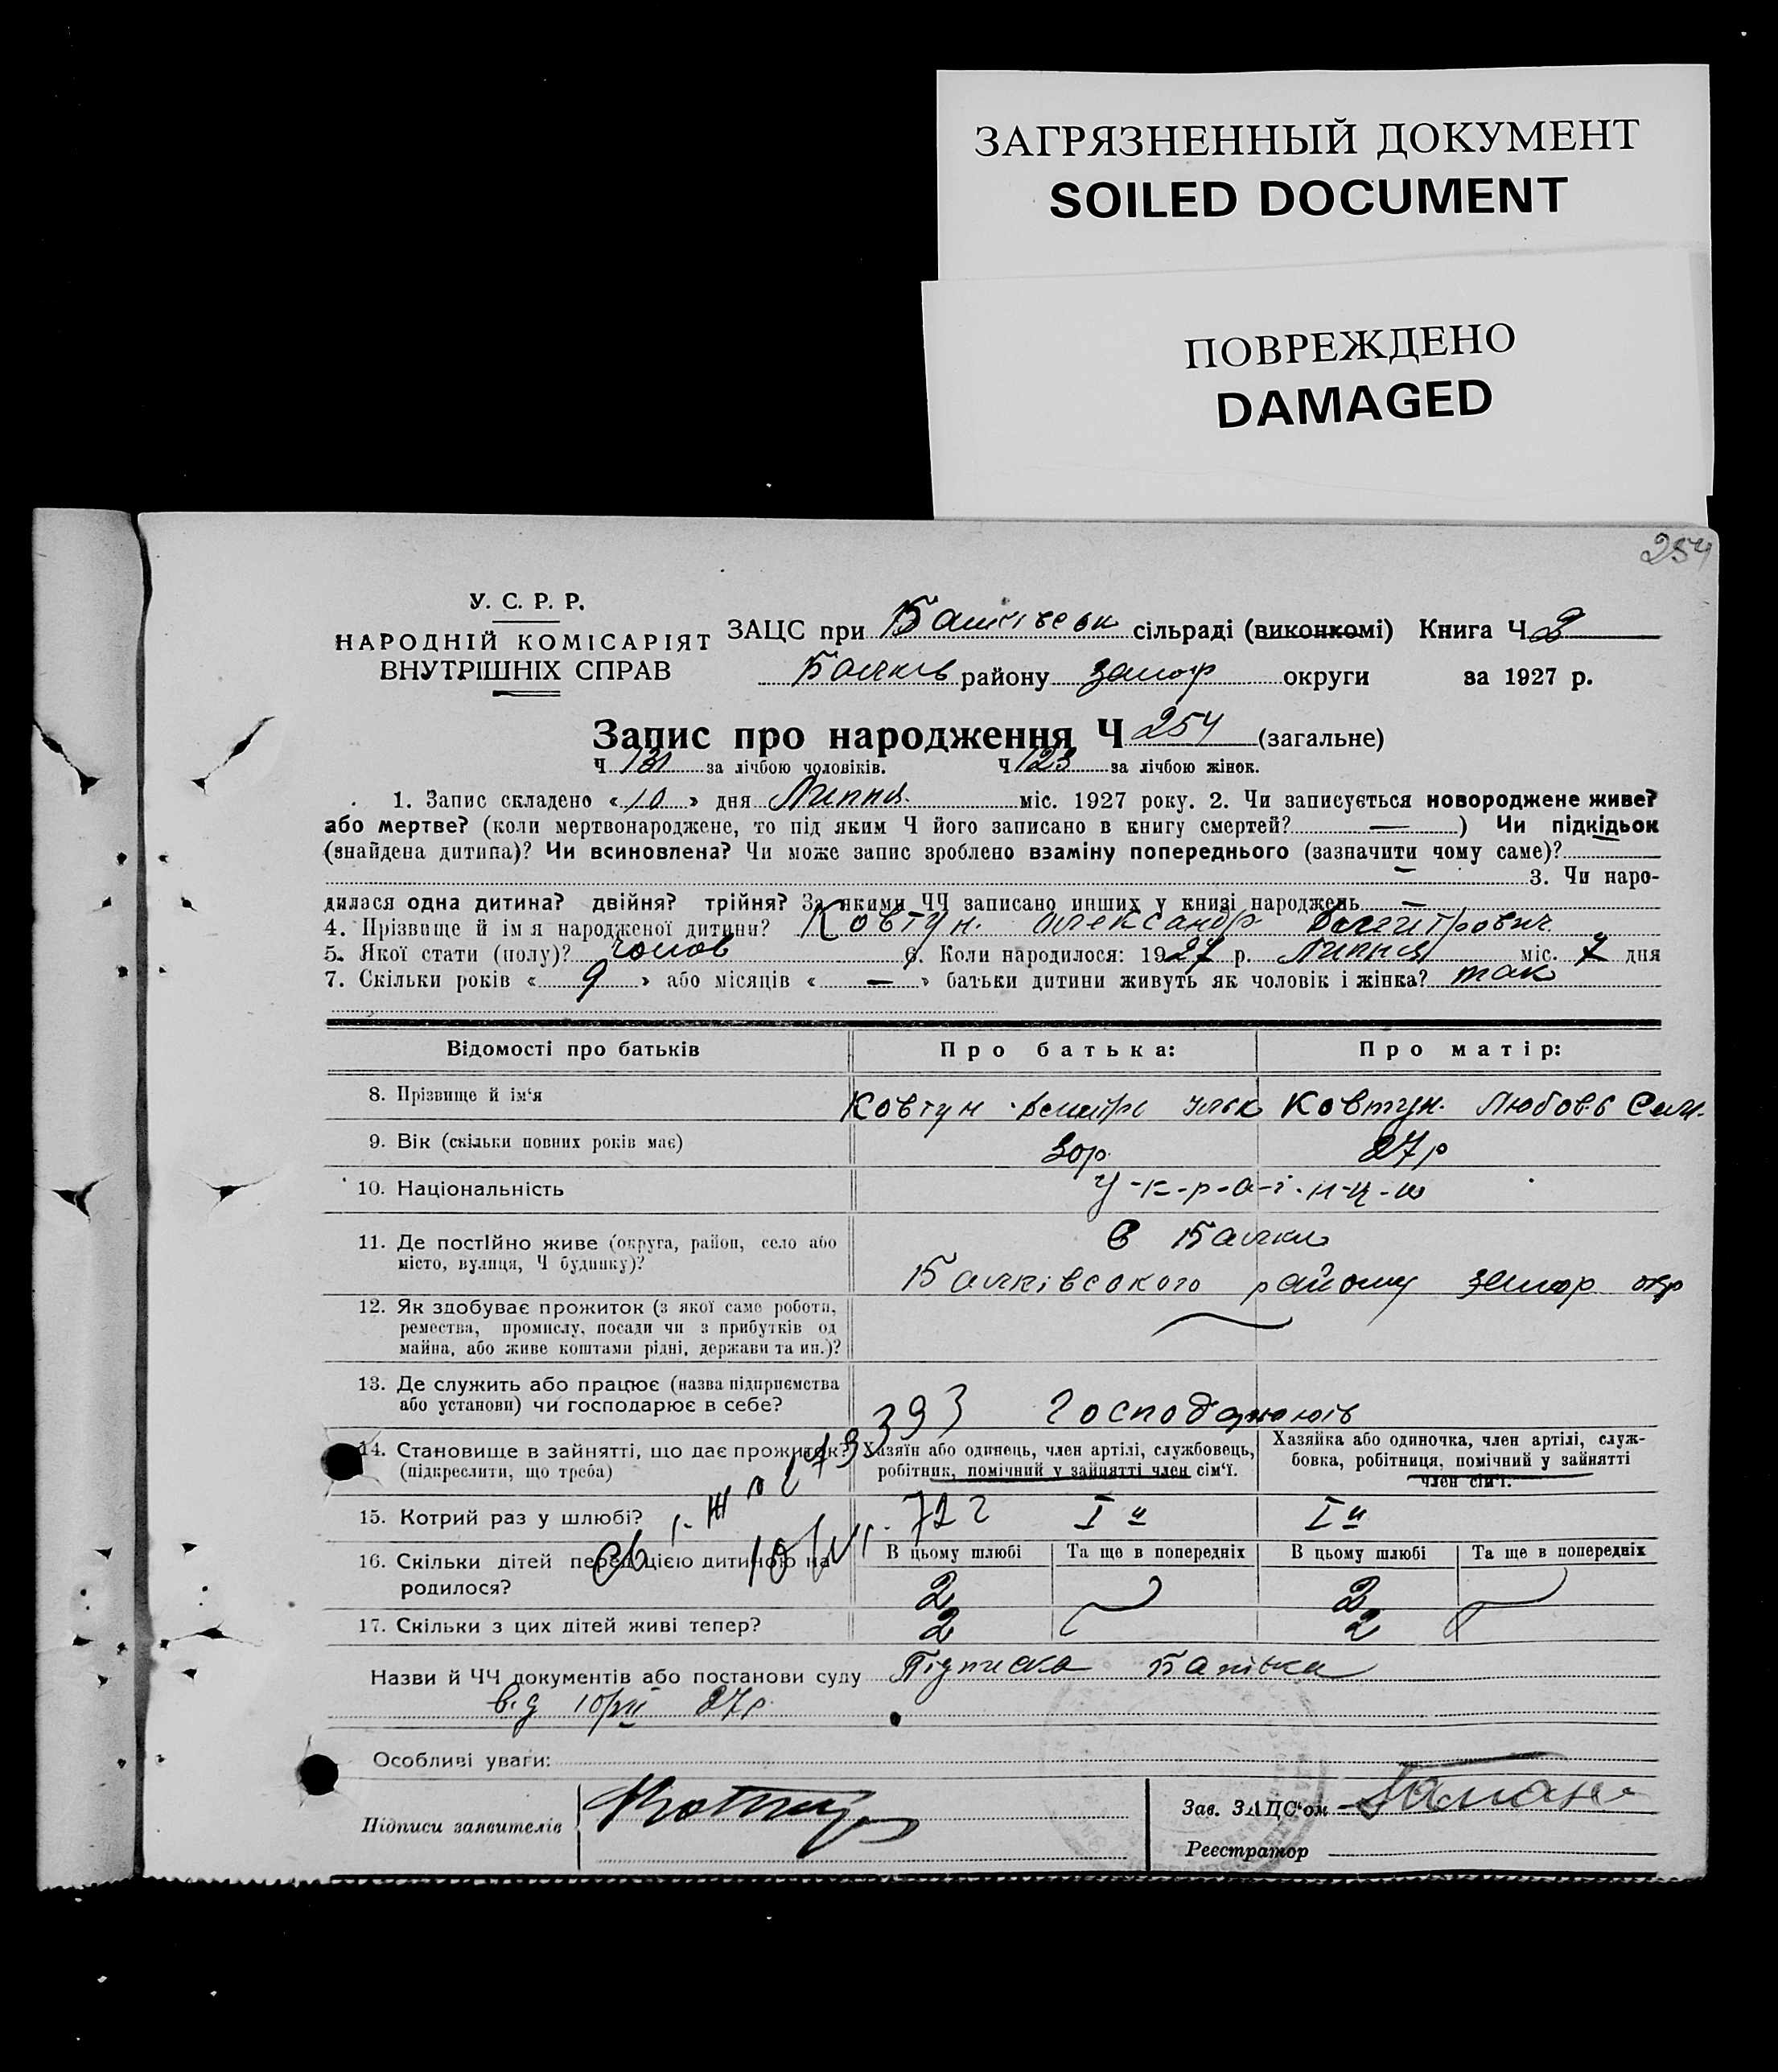 ЗАГРЯЗНЕННЫЙ ДОКУМЕНТ
SOILED DOCUMENT
ПОВРЕЖДЕНО
DAMAGED
254
У. С. Р. Р.
НАРОДНІЙ КОМІСАРІЯТ
ВНУТРІШНІХ СПРАВ
ЗАЦС при сільраді (виконкомі) Книга Ч 2
Балків району запор округи за 1927 р.
Запис про народження Ч 254 (загальне)
Ч 131 за лічбою чоловіків. Ч 123 за лічбою жінок.
1. Запис складено «10» дня Липня міс. 1927 року. 2. Чи записується новороджене живе?
або мертве? (коли мертвонароджене, то під яким Ч його записано в книгу смертей? —) Чи підкідьок
(знайдена дитина)? Чи всиновлена? Чи може запис зроблено взаміну попереднього (зазначити чому саме)?
— 3. Чи наро-
дилася одна дитина? двійня? трійня? За якими ЧЧ записано инших у книзі народжень —
4. Прізвище й ім'я народженої дитини? Ковтун Александр Дмитрович
5. Якої стати (полу)? чолов 6. Коли народилося: 1927 р. Липня міс. 7 дня
7. Скільки років «9» або місяців «—» батьки дитини живуть як чоловік і жінка? так
Відомості про батьків Про батька: Про матір:
8. Прізвище й ім'я Ковтун Дмитро Ковтун Любовь Сем.
9. Вік (скільки повних років має) 30р. 27р
10. Національність У-к-р-а-ї-н-ц-і
11. Де постійно живе (округа, район, село або
місто, вулиця, Ч будинку)? с Балки
Балківського району запор окр
12. Як здобуває прожиток (з якої саме роботи,
ремества, промислу, посади чи з прибутків од
майна, або живе коштами рідні, держави та ин.)?
13. Де служить або працює (назва підприємства
або установи) чи господарює в себе?
14. Становище в зайнятті, що дає прожиток?
(підкреслити, що треба)
Хазяїн або одинець, член артілі, службовець,
робітник, помічний у зайнятті член сім'ї.
Хазяйка або одиночка, член артілі, служ-
бовка, робітниця, помічний у зайнятті
член сім'ї.
15. Котрий раз у шлюбі? І й І й
16. Скільки дітей перед цією дитиною на-
родилося?
В цьому шлюбі Та ще в попередніх В цьому шлюбі Та ще в попередніх
2 2
17. Скільки з цих дітей живі тепер? 2 2
Назви й ЧЧ документів або постанови суду Підписка Батька
від 10/VII 27р.
Особливі уваги:
Підписи заявителів
Зав. ЗАЦС'ом
Реєстратор